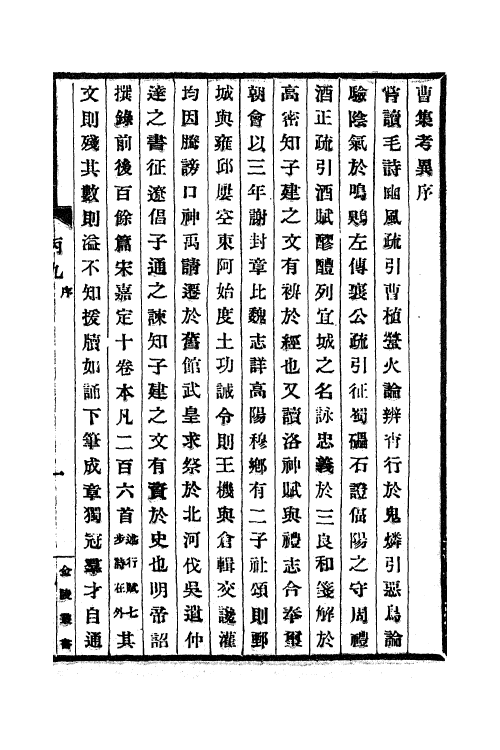 曹集考異序
嘗讀毛詩豳風疏引曹植螢火論辨宵行於鬼燐引惡鳥論
驗陰氣於鳴鵙左傳襄公疏引征蜀礧石證偪陽之守周禮
酒正疏引酒賦醪醴列宜城之名詠忠義於三良和箋解於
高密知子建之文有裨於經也又讀洛神賦與禮志合奉璽
朝會以三年謝封章比魏志詳高陽穆鄉有二子社頌則鄄
城與雍邱屢空東阿始度土功誡令則王機與倉輯交讒灌
均因騰謗口神禹請遷於舊館武皇求祭於北河伐吳遣仲
達之書征遼倡子通之諫知子建之文有賚於史也明帝詔
撰錄前後百餘篇宋嘉定十卷本凡二百六首述行賦七步詩在外其
文則殘其數則溢不知援牘如誦下筆成章獨冠羣才自通
丙九
序
一
金陵叢書